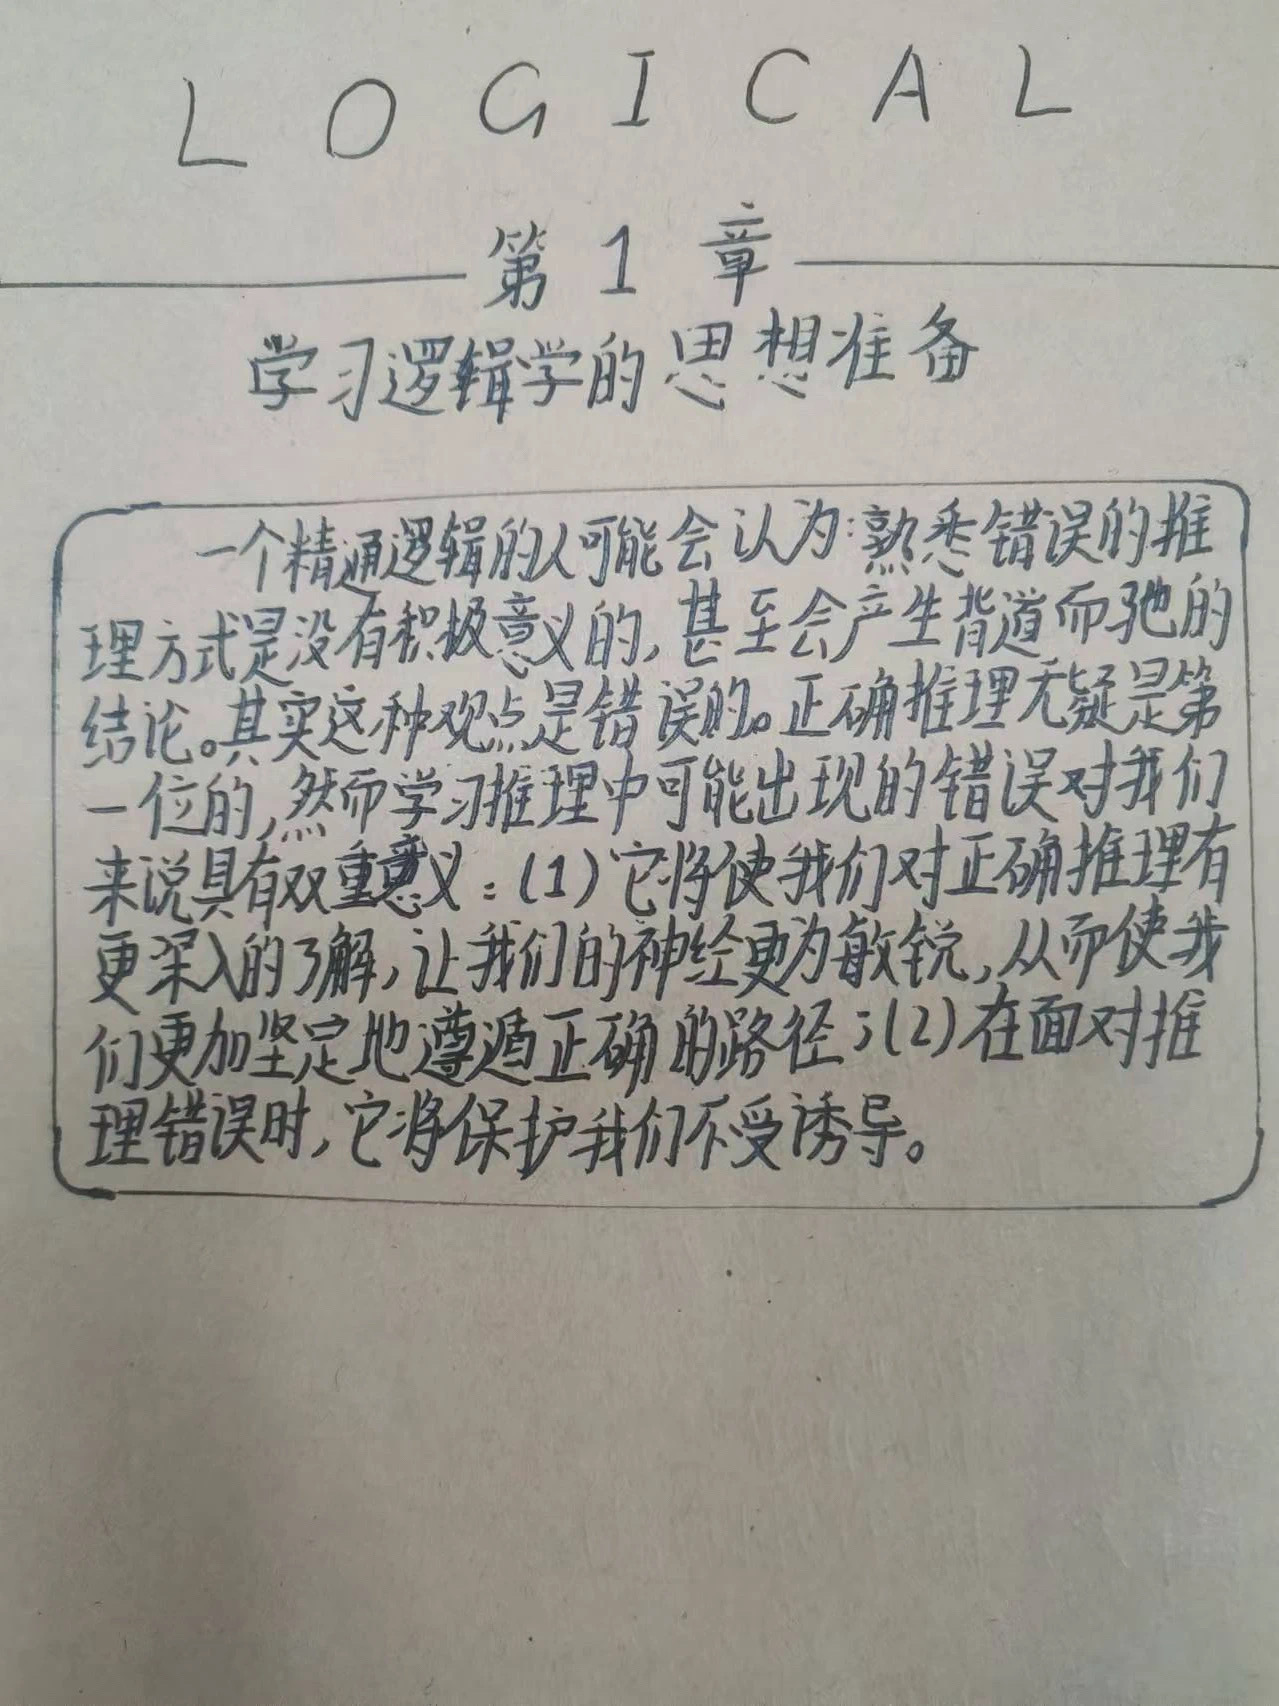 LOGICAL
第1章
学习逻辑学的思想准备
一个精通逻辑的人可能会认为:熟悉错误的推
理方式是没有积极意义的,甚至会产生背道而驰的
结论。其实这种观点是错误的。正确推理无疑是第
一位的,然而学习推理中可能出现的错误对我们
来说具有双重意义:(1)它将使我们对正确推理有
更深入的了解,让我们的神经更为敏锐,从而使我
们更加坚定地遵循正确的路径;(2)在面对推
理错误时,它将保护我们不受诱导。